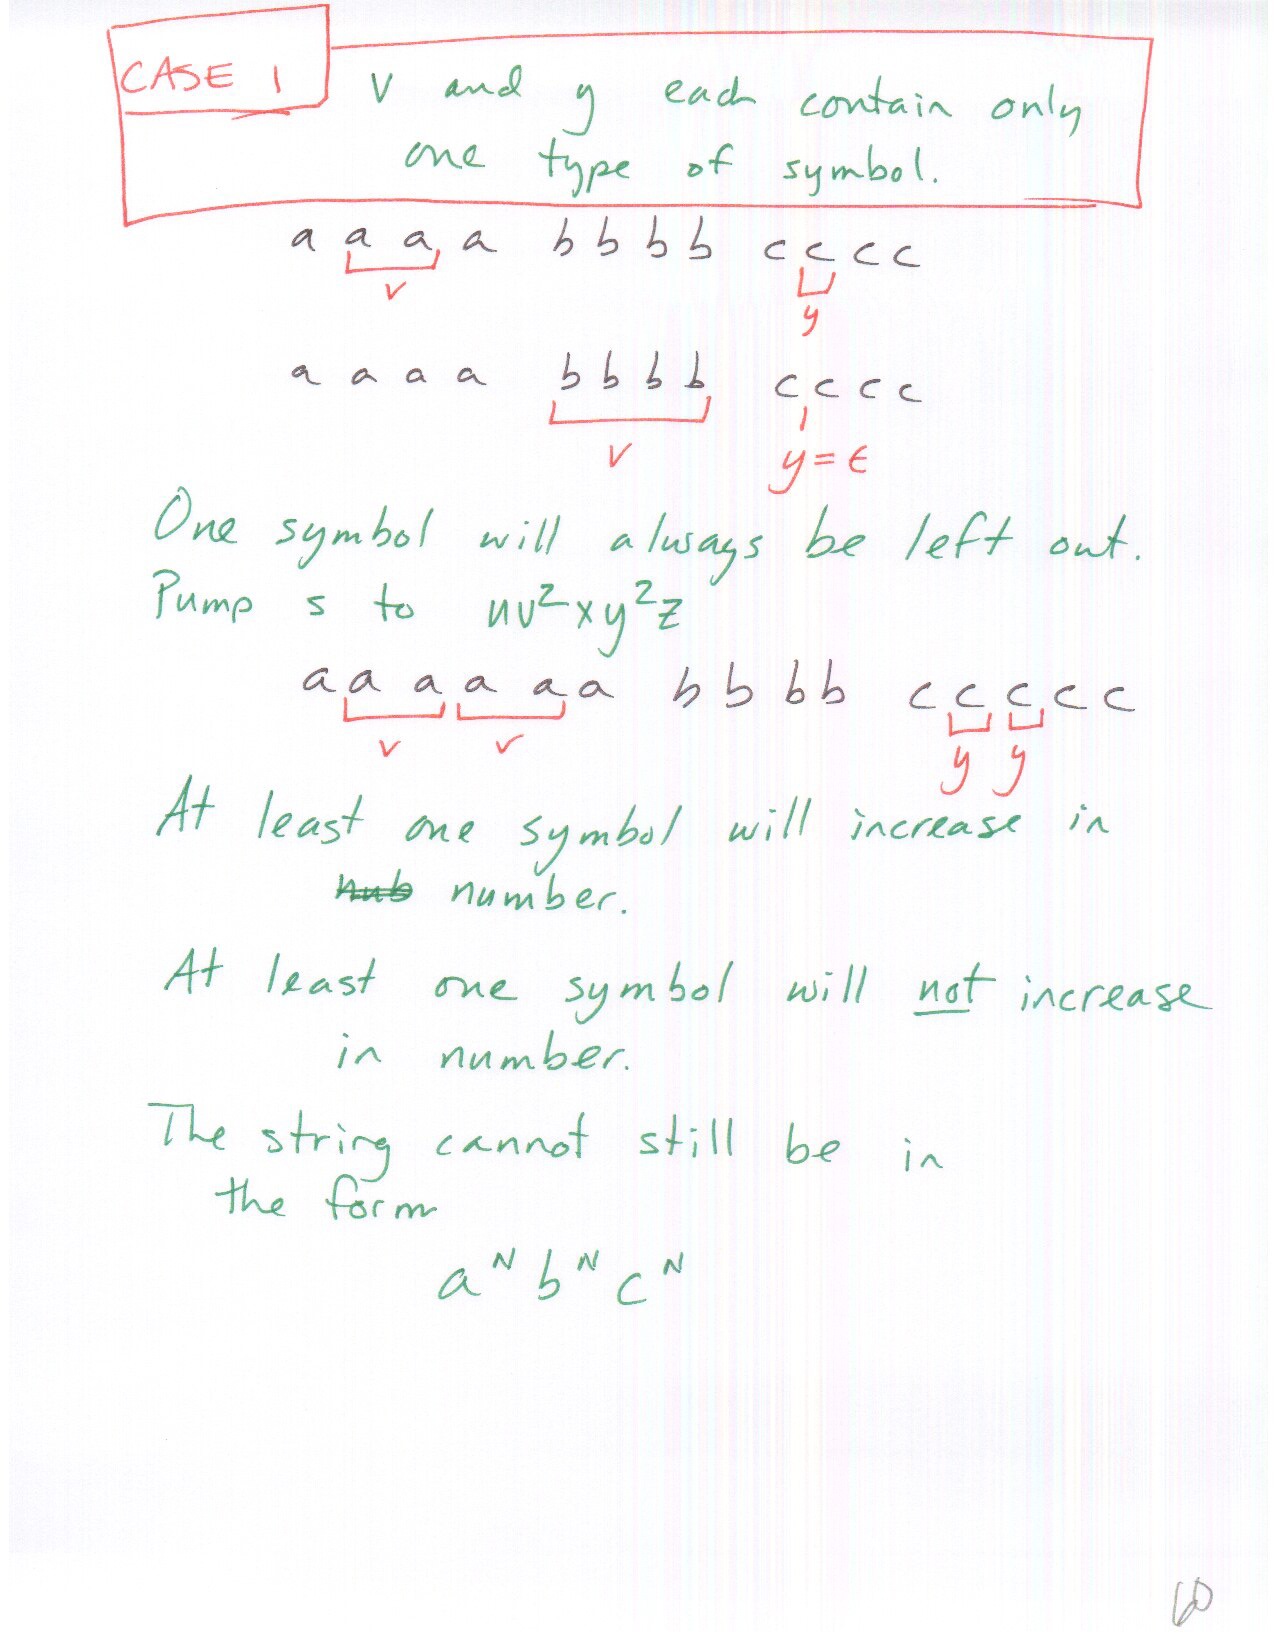 CASE 1
v and y each contain only
one type of symbol.
a a a a b b b b c c c c
v
y
a a a a b b b b c c c c
v y = ε
One symbol will always be left out.
Pump s to uv²xy²z
a a a a a a b b b b c c c c c
v v
y y
At least one symbol will increase in
nub number.
At least one symbol will not increase
in number.
The string cannot still be in
the form
aᴺ bᴺ cᴺ
60